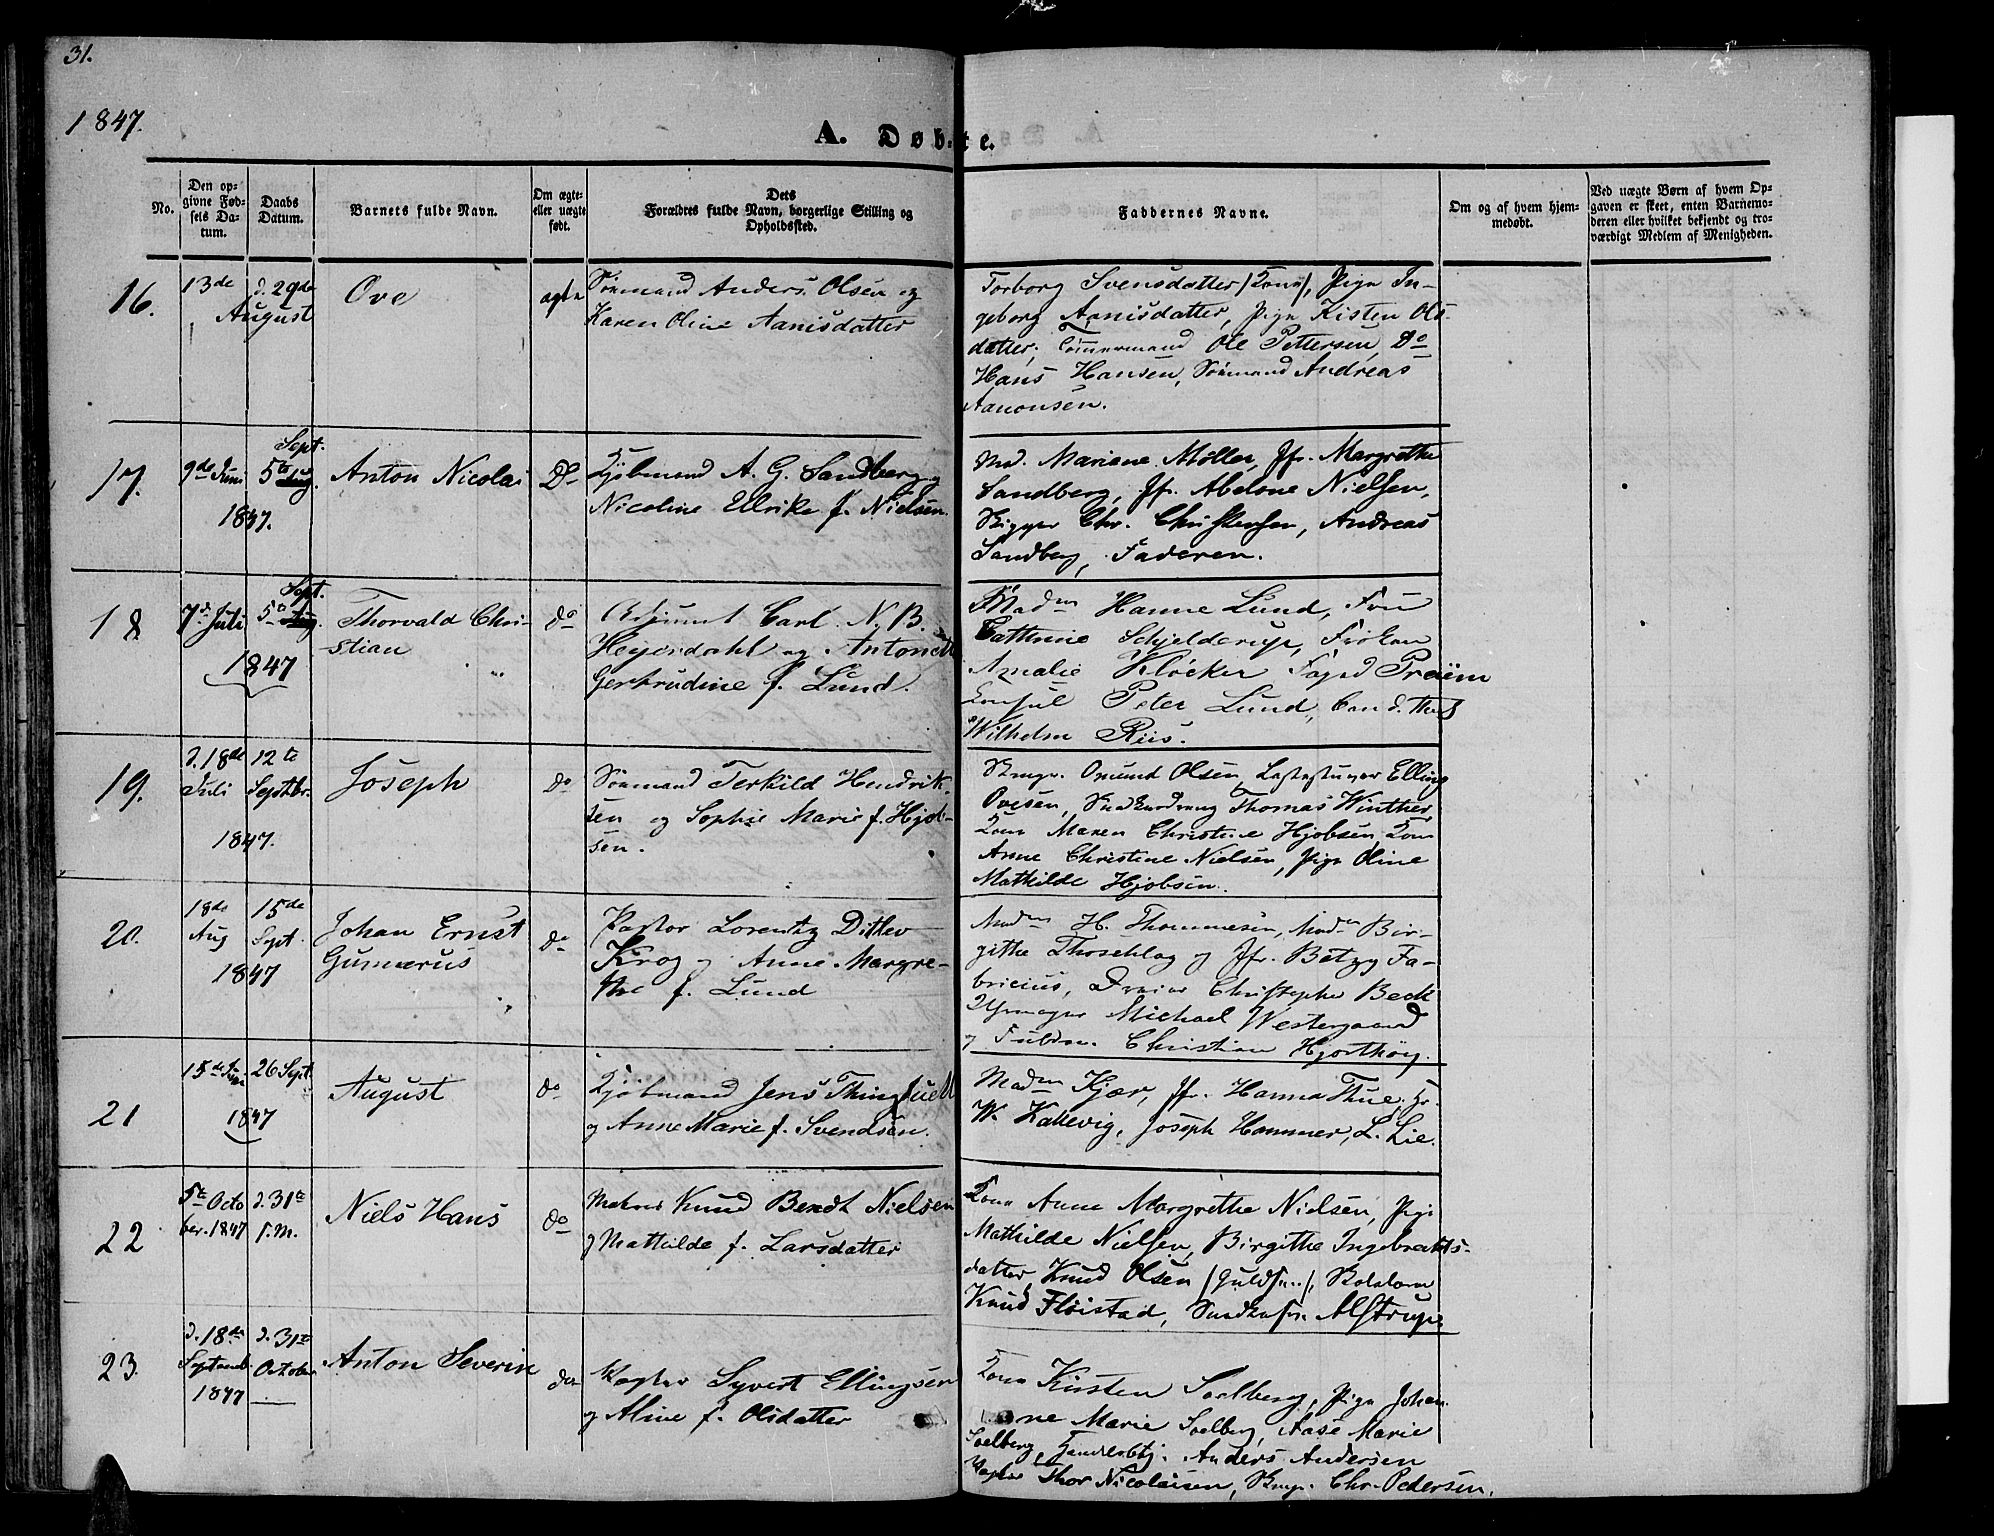 31.
1847.
A. Døbte.
No.
Den op-
givne Fød-
sels Da-
tum.
Daabs
Datum.
Barnets fulde Navn.
Om ægte-
eller uægte
født.
Dets
Forældres fulde Navn, borgerlige Stilling og
Opholdssted.
Faddernes Navne.
Om og af hvem hjem-
medøbt.
Ved uægte Børn af hvem Op-
gaven er skeet, enten Barnemo-
deren eller hvilket bekjendt og tro-
værdigt Medlem af Menigheden.
16.
13de
d. 29de
August
Ove
ægte
Sømand Anders Olsen og
Karen Oline Aanisdatter
Torborg Svensdatter /Kone/, Pige In-
geborg Aanisdatter, Pige Kisten Ols-
datter, Tømermand Ole Pettersen, Do
Hans Hansen, Sømand Andreas
Aanonsen.
17.
9de Juni
Sept.
5te Aug.
1847.
Anton Nicolai
Do
Kjøbmand A. G. Sandberg og
Nicoline Ulrike f. Nielsen.
Md. Mariane Møller, Jfr. Margrethe
Sandberg, Jfr. Abelone Nielsen,
Skipper Chr. Christensen, Andreas
Sandberg, Faderen.
18
7d Juli
Sept.
5te Aug.
1847
Thorvald Chri-
stian
do
Adjunct Carl N. B.
Heyerdahl og Antonette
Gertrudine f. Lund.
Madm Hanne Lund, Fru
Cathrine Schjelderup, Frøken
Amalie Kløcker Foged Preüm
Consul Peter Lund, Cand. Theol
Wilhelm Riis.
19.
d. 18de
Juli
12te
Septbr.
1847.
Joseph
do
Sømand Terkild Hendrik-
sen og Sophie Marie f. Hjob-
sen.
Onund Olsen, Elling
Ovesen, Thomas Winther
Kone Maren Christine Hjobsen, Kone
Anne Christine Nielsen, Pige Oline
Mathilde Hjobsen.
20.
18de
Aug
15de
Sept.
1847
Johan Ernst
Gunnerus
do
Pastor Lorentz Ditlev
Krog og Anne Margre-
the f. Lund
Madm H. Thommesen, Madm Bir-
githe Thoschlag og Jfr. Betzy Fa-
bricius, Dreier Christopher Beck
Uhrmager Michael Westergaard
og Fuldm. Christian Hjorthøy.
21
15de Juni
26 Sept.
1847
August
do
Kjøbmand Jens Thingfuelt
og Anne Marie f. Svendsen.
Madm Kjær, Jfr. Hanna Thue, Hr.
W. Kallevig, Joseph Hammer, L. Lie.
22
5te Octo
ber. 1847
d. 31te
s. M.
Niels Hans
do
Knud Bendt Nielsen
og Mathilde f. Larsdatter
Kone Anne Margrethe Nielsen, Pige
Mathilde Nielsen, Birgithe Ingebrechts-
datter, Knud Olsen /Guldsm./,
Knud Fløistad, Alstrup.
23.
d. 18de
Septemb.
1847
d. 31te
October
Anton Severin
do
Syvert Ellingsen
og Aline f. Olsdatter
Kone Kirsten Soelberg, Pige Johan-
ne Marie Soelberg, Aase Marie
Soelberg, Handelsbtj. Anders Andersen
Thor Nicolaisen, Chr. Pedersen.